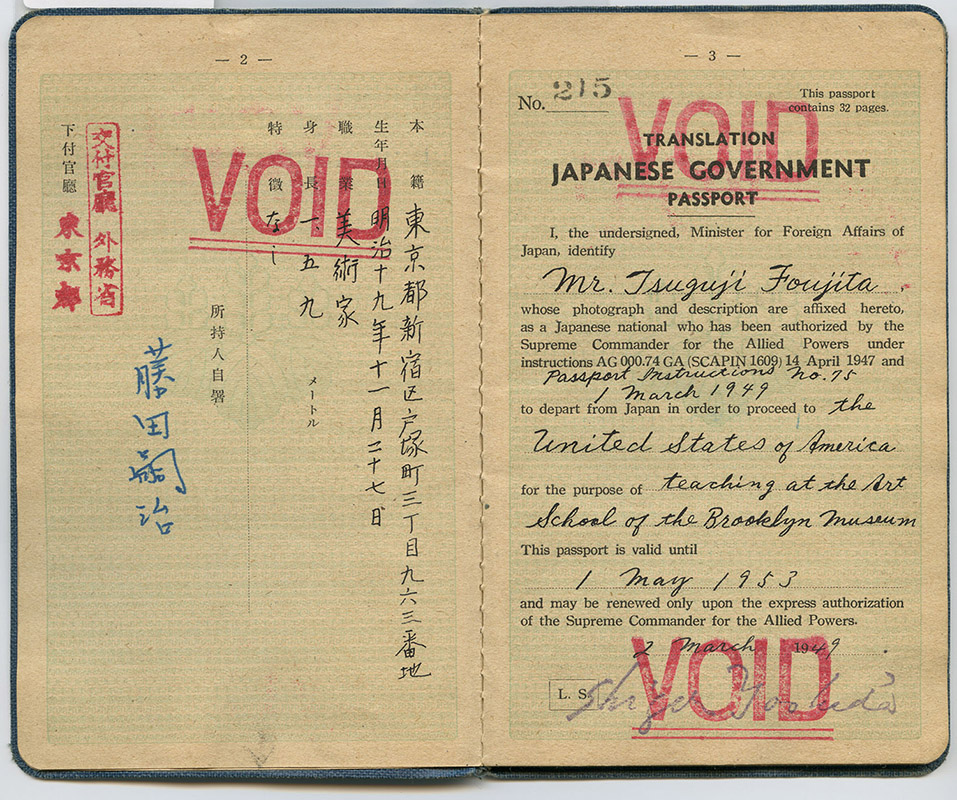 — 2 —
本籍 東京都新宿区戸塚町三丁目九六三番地
生年月日 明治十九年十一月二十七日
職業 美術家
身長 一、五九 メートル
特徴 なし
VOID
所持人自署
藤田嗣治
交付官廳 外務省
下付官廳 東京都
— 3 —
No. 215
This passport
contains 32 pages.
VOID
TRANSLATION
JAPANESE GOVERNMENT
PASSPORT
I, the undersigned, Minister for Foreign Affairs of
Japan, identify
Mr. Tsuguji Foujita,
whose photograph and description are affixed hereto,
as a Japanese national who has been authorized by the
Supreme Commander for the Allied Powers under
instructions AG 000.74 GA (SCAPIN 1609) 14 April 1947 and
Passport Instructions No. 75
1 March 1949
to depart from Japan in order to proceed to the
United States of America
for the purpose of teaching at the Art
School of the Brooklyn Museum
This passport is valid until
1 May 1953
and may be renewed only upon the express authorization
of the Supreme Commander for the Allied Powers.
2 March 1949
VOID
L. S.
Shigeru Yoshida